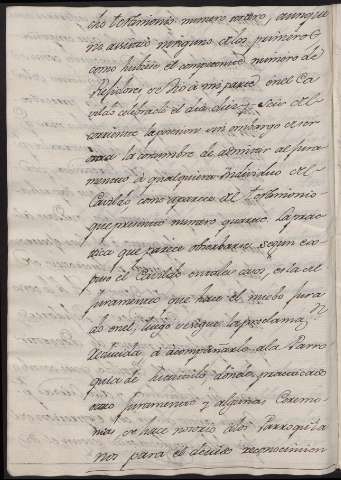 cho testimonio numero tercero, aunque
no asistió ninguno de los primeros
como hubiese el competente numero de
Regidores se dió á mi parte en el Ca
vildo celebrado el dia diez y seis del
corriente la posesion sin embargo de ser
otra la costumbre de admitir al jura
mento á qualquiera individuo del
Cavildo como aparece del testimonio
que presento numero quarto. La prac
tica que parece observarse, segun ex
puso el Cavildo en tales casos, es la del
juramento que hace el nuebo Jura
do en el, luego se sigue la proclama
deducida, á acompañarlo a la Parro
quia de donde presta
otro juramento y algunas Ceremo
nias, se hace notorio a los Parroquia
nos para el devido reconocimien